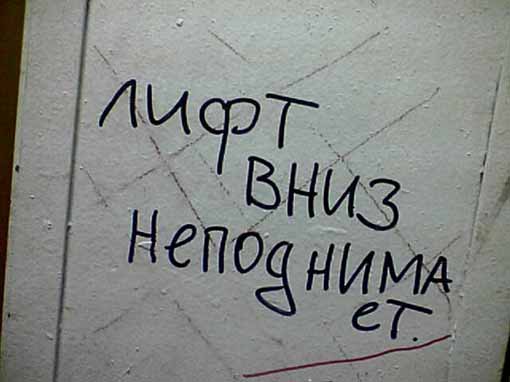 ЛИФТ
ВНИЗ
НеПОДНИМА
еТ.